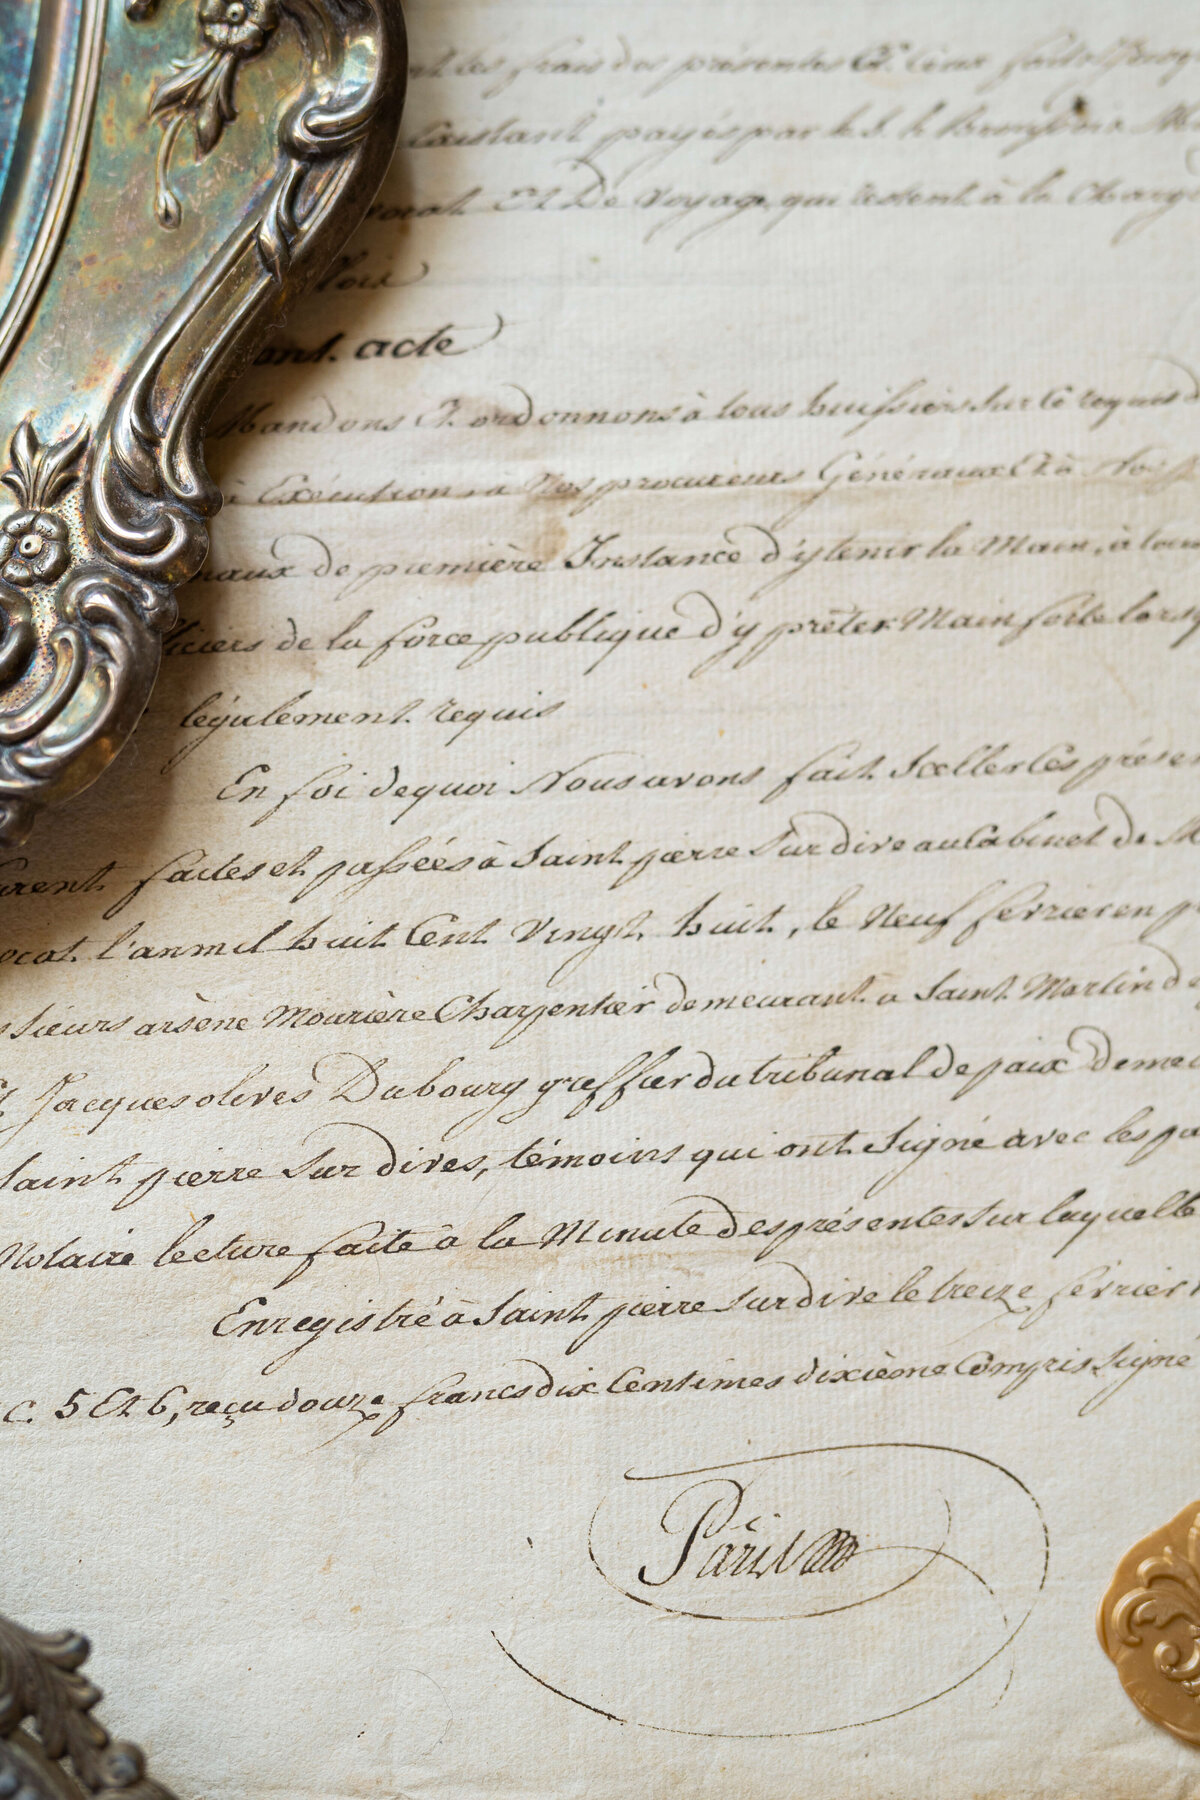 les frais des présentes Et Ceux
payés par le S. le
Et De voyage, qui restent à la Charge
lois
ont. acte
Mandons Et ordonnons à tous huissiers sur Ce requis
à Exécution, a Nos procureurs Généraux Et à Nos
naux de première Instance d'ytenir la Main, à tous
fficiers de la force publique d'y prêter Main forte lorsq
légalement requis
En foi dequoi Nous avons fait Sceller Ces présen
furent faites et passées à Saint pierre Sur dive au Cabinet de M
ocat l'an mil huit Cent Vingt huit, le Neuf fevrier en p
ssieurs arsène Mourière Charpentier demeurant a Saint Martin de
Et Jacques olives Dubourg greffier du tribunal de paix Demeu
Saint pierre Sur dives, témoins qui ont Signé avec les pa
Notaire lecture faite à la Minute des présentes sur laquelle
Enregistré à Saint pierre Sur dive le treize février
C. 5 Et 6, reçu douze francs dix Centimes dixième Compris Signe